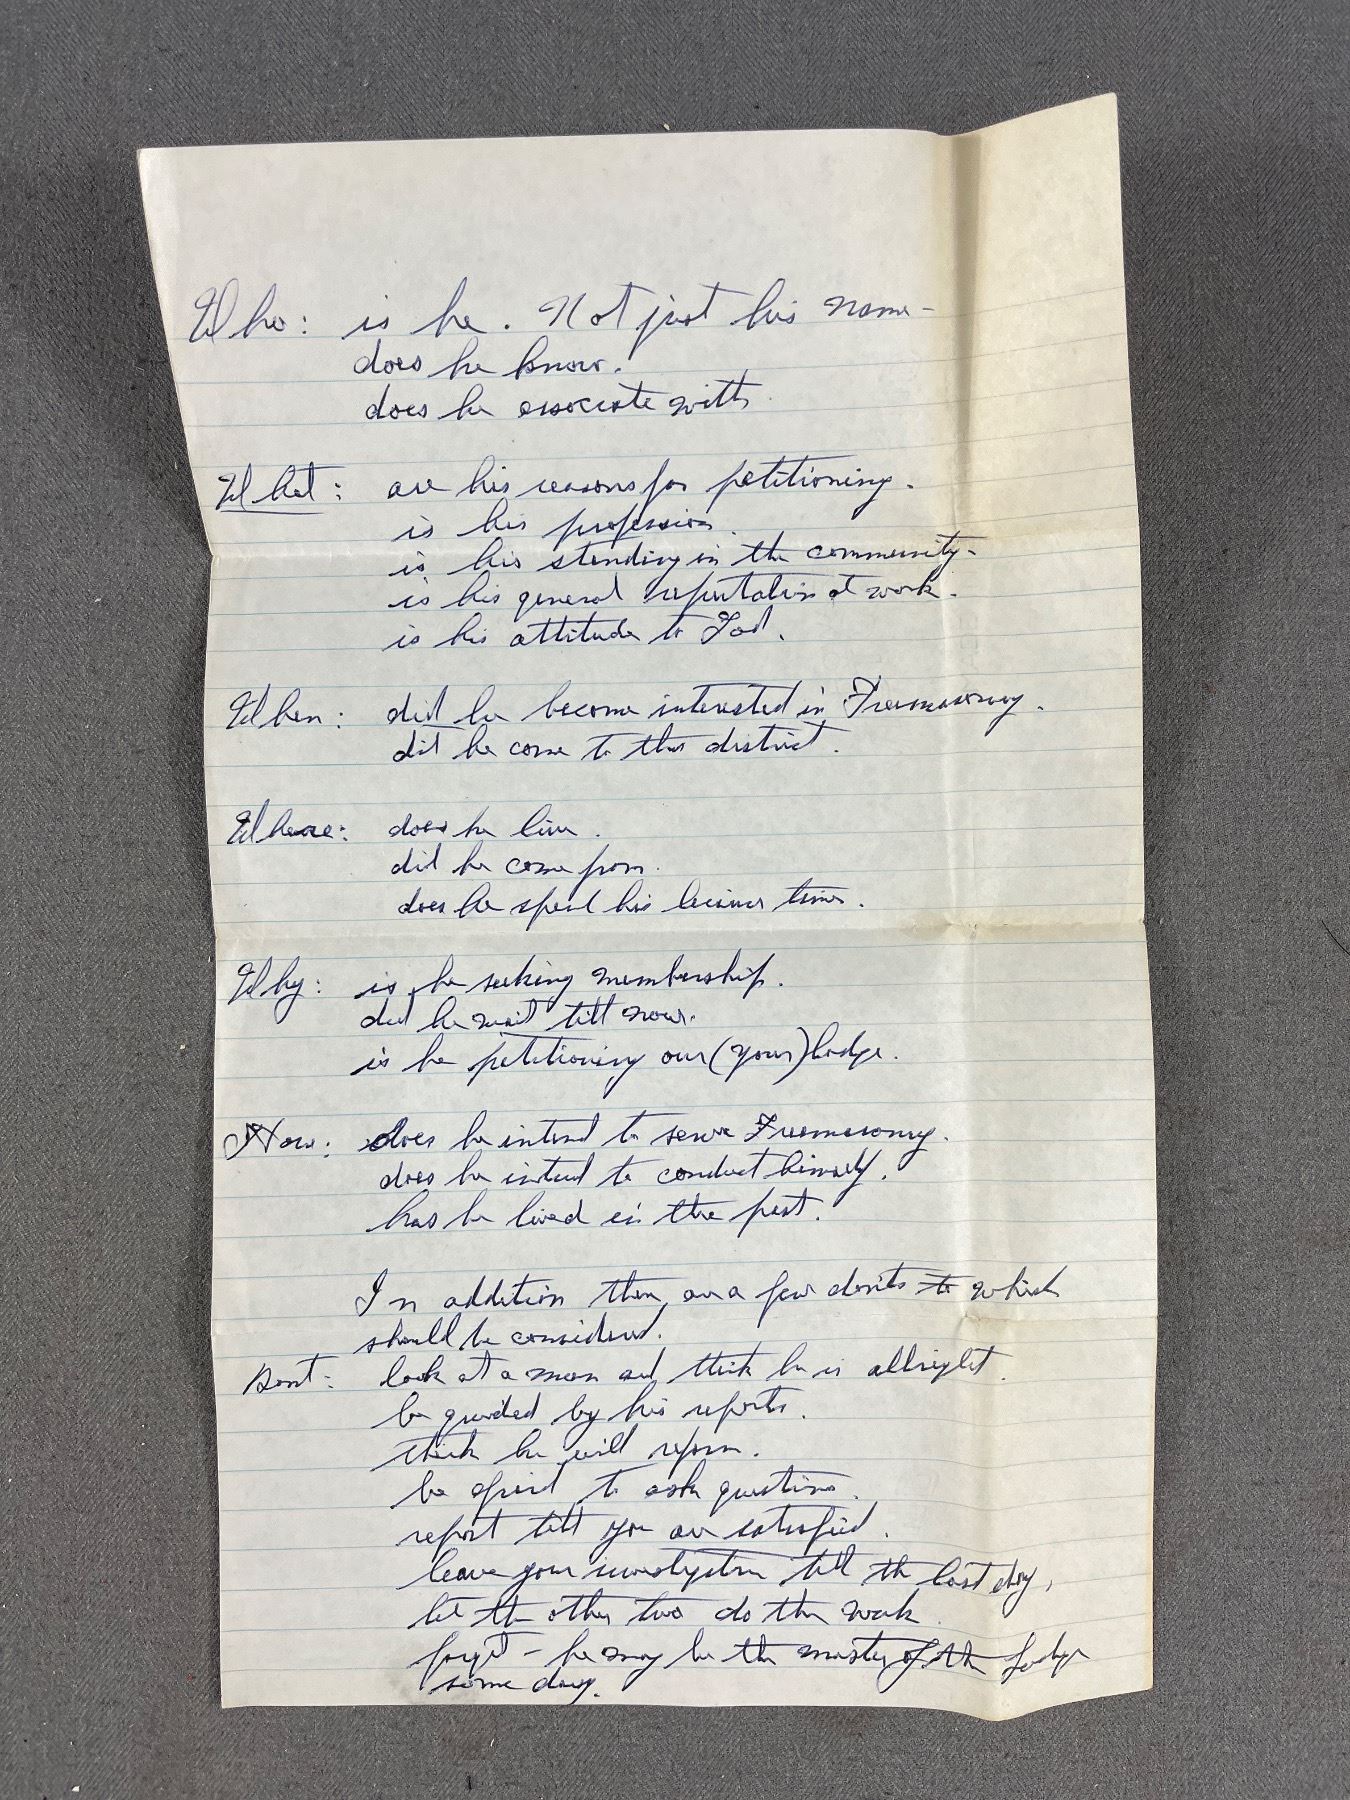 Who: is he. Not just his name-
does he know.
does he associate with
What: are his reasons for petitioning.
is his profession.
is his standing in the community.
is his general reputation at work.
is his attitude to God.
When: did he become interested in Freemasonry.
did he come to this district.
Where: does he live.
did he come from.
does he spend his leisure time.
Why: is he seeking membership.
did he wait till now.
is he petitioning our (your) lodge.
How: does he intend to serve Freemasonry.
does he intend to conduct himself.
has he lived in the past.
In addition there are a few don'ts to which
should be considered.
Dont: look at a man and think he is allright.
be guided by his reports.
think he will reform.
be afraid to ask questions.
report till you are satisfied.
leave your investigation till the last day,
let the other two do the work.
forget - he may be the master of the Lodge
some day.